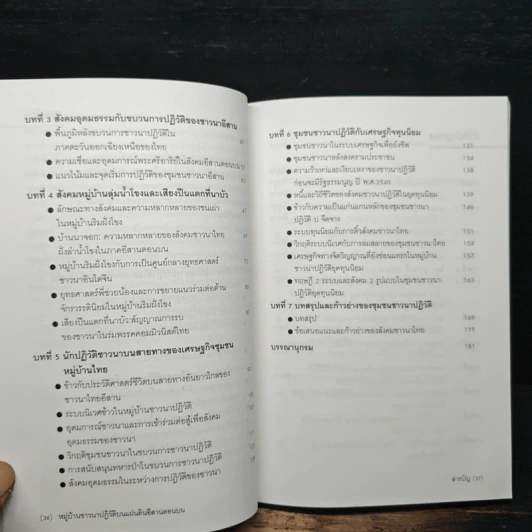 บทที่ 3 สังคมอุดมธรรมกับขบวนการปฏิวัติของชาวนาอีสาน
● พื้นภูมิหลังขบวนการชาวนาปฏิวัติใน
ภาคตะวันออกเฉียงเหนือของไทย
● ความเชื่อและอุดมการณ์พระศรีอาริย์ในสังคมอีสานตอนบน
● แนวโน้มและจุดเริ่มการปฏิวัติของชุมชนชาวนาอีสาน
บทที่ 4 สังคมหมู่บ้านลุ่มน้ำโขงและเสียงปืนแตกที่นาบัว
● ลักษณะทางสังคมและความหลากหลายของชนเผ่า
ในหมู่บ้านริมฝั่งโขง
● บ้านนาจอก: ความหลากหลายของสังคมชาวนาไทย
ฝั่งลำน้ำโขงในภาคอีสานตอนบน
● หมู่บ้านริมฝั่งโขงกับการเป็นศูนย์กลางยุทธศาสตร์
ชาวนาอินโดจีน
● ยุทธศาสตร์พี่ช่วยน้องและการขยายแนวร่วมต่อต้าน
จักรวรรดินิยมในหมู่บ้านริมฝั่งโขง
● เสียงปืนแตกที่นาบัว:สัญญาณการรบ
ของชาวนาในร่มพรรคคอมมิวนิสต์ไทย
บทที่ 5 นักปฏิวัติชาวนาบนสายทางของเศรษฐกิจชุมชน
หมู่บ้านไทย
● ข้าวกับประวัติศาสตร์ชีวิตบนสายทางอันยาวไกลของ
ชาวนาไทยอีสาน
● ระบบนิเวศข้าวในหมู่บ้านชาวนาปฏิวัติ
● อุดมการณ์ชาวนาและการเข้าร่วมต่อสู้เพื่อสังคม
อุดมธรรมของชาวนา
● วิกฤติชุมชนชาวนาในขบวนการชาวนาปฏิวัติ
● การสนับสนุนทหารป่าในขบวนการชาวนาปฏิวัติ
● สังคมอุดมธรรมในระหว่างการปฏิวัติของชาวนา
(36) หมู่บ้านชาวนาปฏิวัติบนแผ่นดินอีสานตอนบน
บทที่ 6 ชุมชนชาวนาปฏิวัติกับเศรษฐกิจทุนนิยม
● ชุมชนชาวนาในระบบเศรษฐกิจเพื่อยังชีพ 131
● ชุมชนชาวนาหลังสงครามประชาชน 134
● ความว้าเหว่และเงียบเหงาของชาวนาปฏิวัติ 138
ก่อนจะมีรัฐธรรมนูญ ปี พ.ศ.2540
● หนี้และวิถีชีวิตของสังคมชาวนาปฏิวัติในยุคทุนนิยม
● ข้าวกับความเป็นแก่นแกนหลักของชุมชนชาวนา
ปฏิวัติ
● ระบบทุนนิยมกับการตั้วสังคมชาวนาไทย 151
● วิกฤติระบบนิเวศกับการล่มสลายของชุมชนชาวนาไทย 154
● เศรษฐกิจทางจิตวิญญาณที่ยังซ่อนแทรกในหมู่บ้าน
ชาวนาปฏิวัติยุคทุนนิยม
● ทฤษฎี 2 ระบบและสังคม 2 รูปแบบในชุมชนชาวนา
ปฏิวัติยุคทุนนิยม
บทที่ 7 บทสรุปและก้าวย่างของชุมชนชาวนาปฏิวัติ
● บทสรุป 169
● ข้อเสนอแนะและก้าวย่างของสังคมชาวนาไทย
บรรณานุกรม 181
สารบัญ (37)